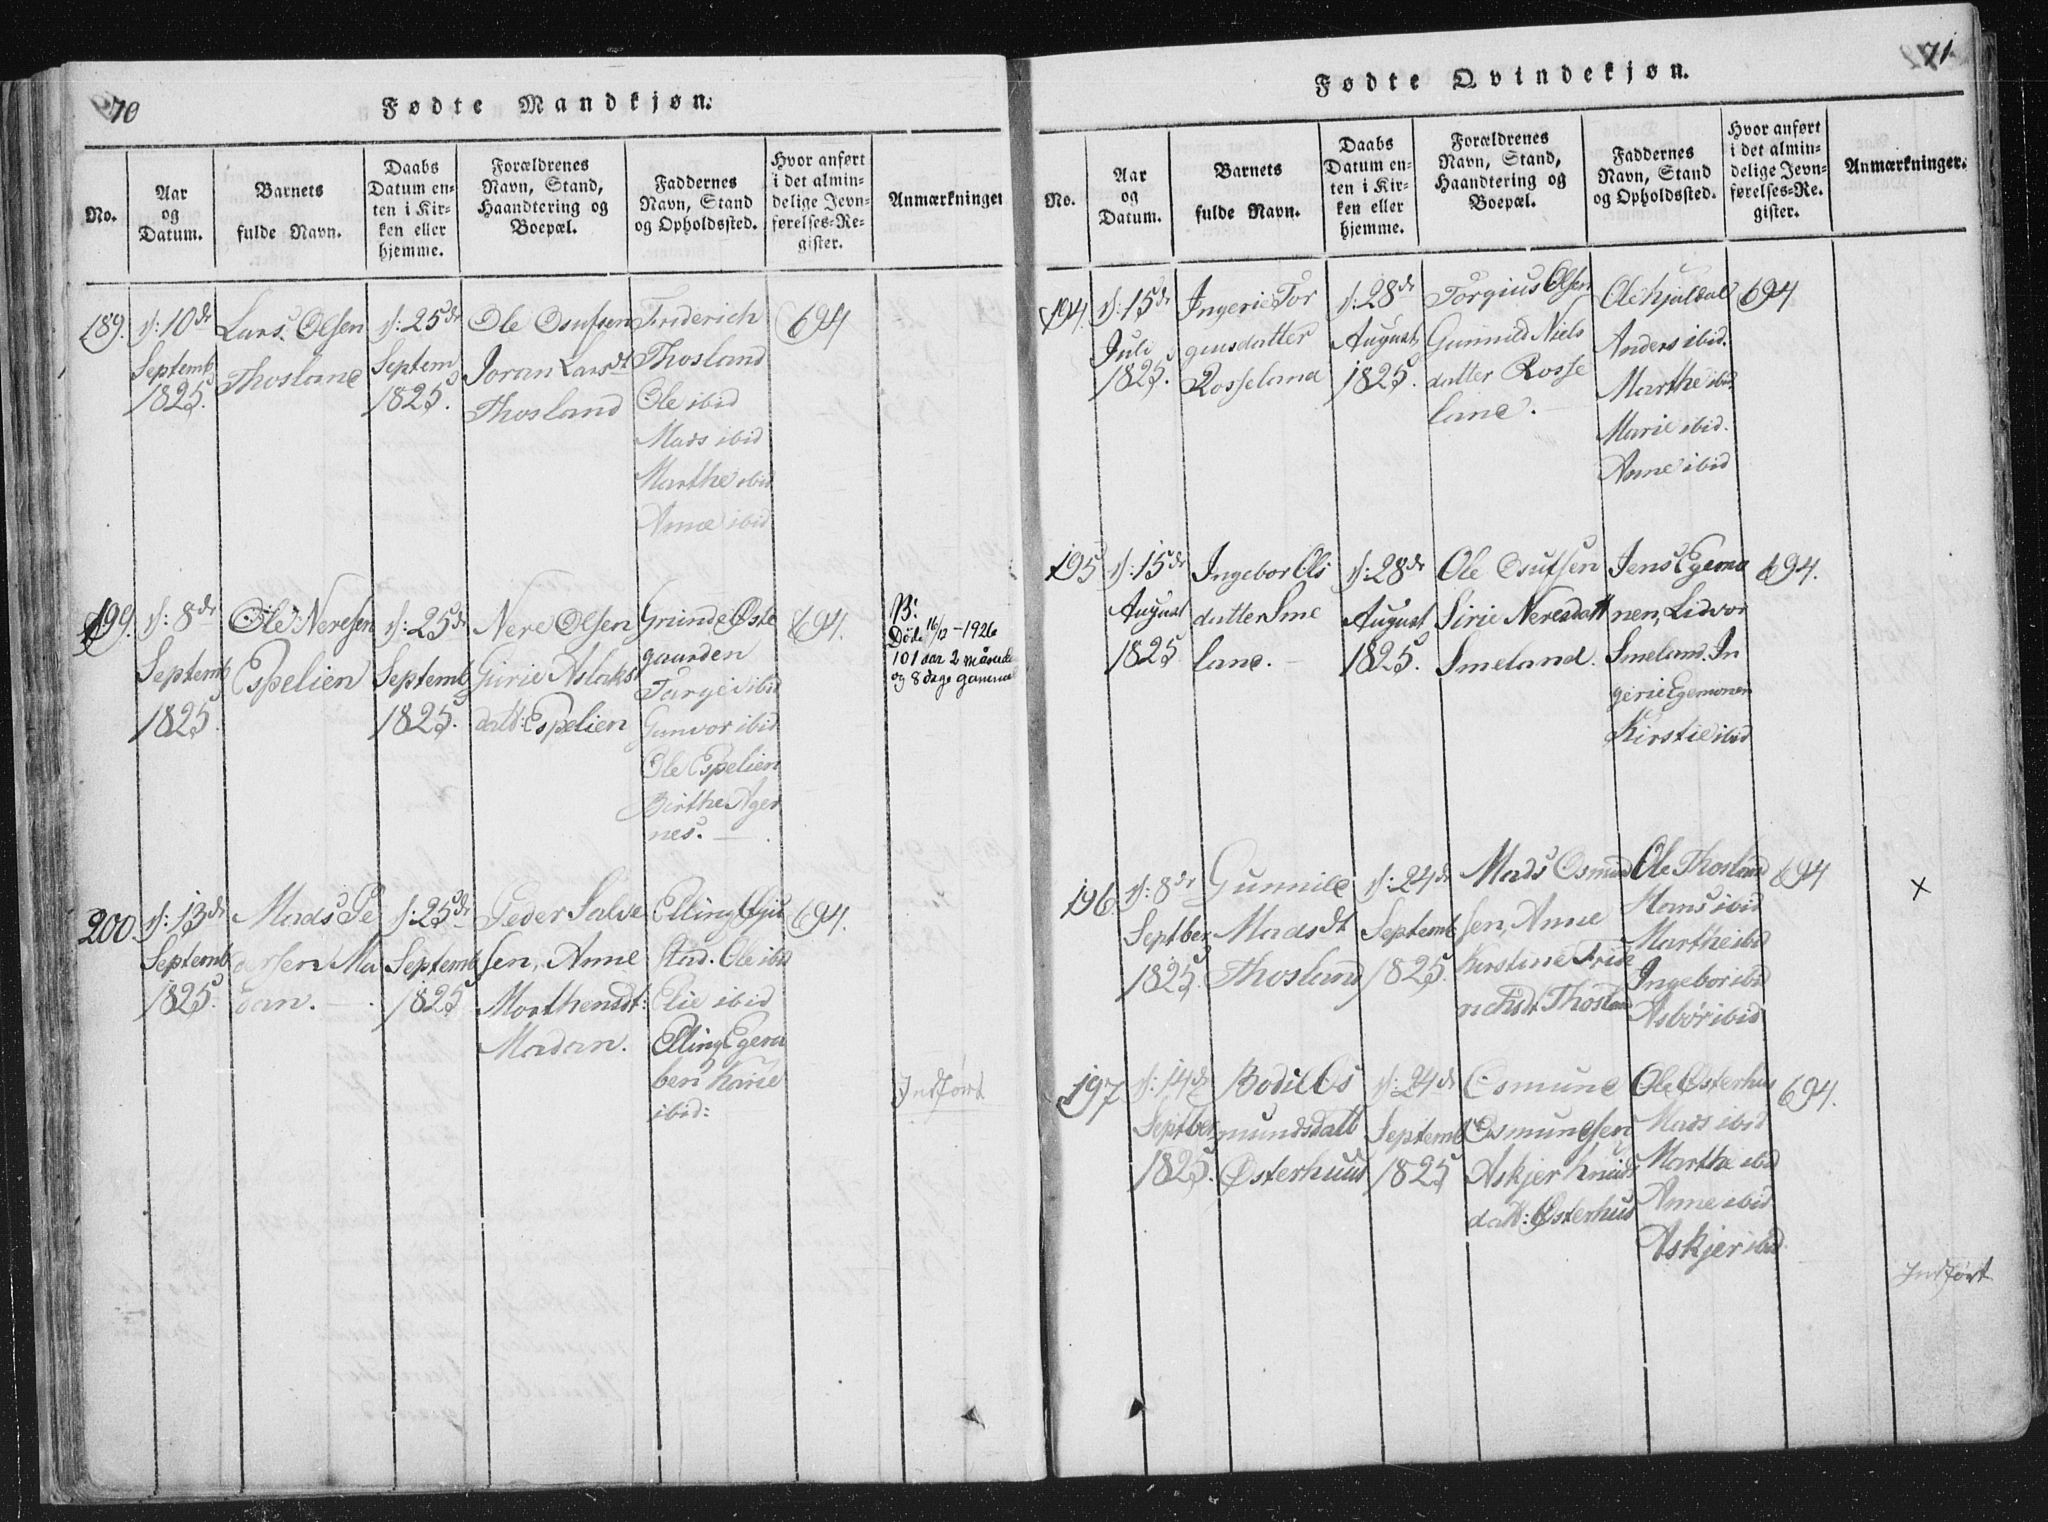 70
Fødte Mandkjøn.
No.
Aar
og
Datum.
Barnets
fulde Navn.
Daabs
Datum en-
ten i Kir-
ken eller
hjemme.
Forældrenes
Navn, Stand,
Haandtering og
Boepæl.
Faddernes
Navn, Stand
og Opholdssted.
Hvor anført
i det almin-
delige Jevn-
førelses-Re-
gister.
Anmærkninger
189.
d: 10de
Septemb
1825.
Lars Olsen
Thosland
d: 25de
Septem
1825.
Ole Osufsen
Joran Larsdt
Thosland
Friderich
Thosland
Ole ibid
Mads ibid
Marthe ibid
Anne ibid
694
199.
d: 8de
Septemb
1825.
Ole Neresen
Espelien
d: 25de
Septemb
1825.
Nere Olsen
Gurie Aslaks
datt: Espelien
Grunde Øste
gaarden
Targie ibid
Gunvor ibid
Ole Espelien
Birthe Ager
nes. —
694.
Døde 16/12 - 1926
101 aar 2 maaneder
og 8 dage gammel
200.
d: 13de
Septemb
1825.
Mads Pe
dersen Ma
dan. — .
d: 25de
Septemb
1825
Peder Salve
sen, Anne
Morthensdt:
Madan.
Elling
Stad. Ole ibid
Elie ibid
Elling Egera
ben Karie
ibid:
694.
Indført
71.
Fødte Qvindekjøn.
No.
Aar
og
Datum.
Barnets
fulde Navn.
Daabs
Datum en-
ten i Kir-
ken eller
hjemme.
Forældrenes
Navn, Stand,
Haandtering og
Boepæl.
Faddernes
Navn, Stand
og Opholdssted.
Hvor anført
i det almin-
delige Jevn-
førelses-Re-
gister.
Anmærkninger.
194.
d: 15de
Juli
1825.
Ingerie Tor
giusdatter
Rosseland
d: 28de
August
1825.
Torgius Olsen
Gunnild Niels
datter Rosse
land. —
Ole Hjuldal
Anders ibid.
Marthe ibid
Marie ibid.
Anne ibid
694
195
d: 15de
August
1825
Ingebor Ols
datter Sme
land. —
d: 28de
August
1825.
Ole Osufsen
Sirie Neresdatt
Smeland.
Jens Egemo
nen, Lidvor
Smeland. In
gerie Egemonen
Kirstie ibid
694.
196.
d: 8de
Septber
1825.
Gunnild
Madsdt
Thosland
d: 24de
Septemb
1825.
Mads Osmund
sen, Anne
Kirstine Fride
richsdt Thosland
Ole Thosland
Hans ibid
Marthe ibid
Ingebor ibid
Asbør ibid
694
x
197
d: 14de
Septber
1825.
Bodil Os
mundsdatt
Østerhuus
d: 24de
Septemb
1825
Osmund
Osmundsen
Askjer Knuds
datt: Østerhus
Ole Østerhus
Mads ibid
Marthe ibid
Anne ibid
Askjer ibid.
694.
Indført